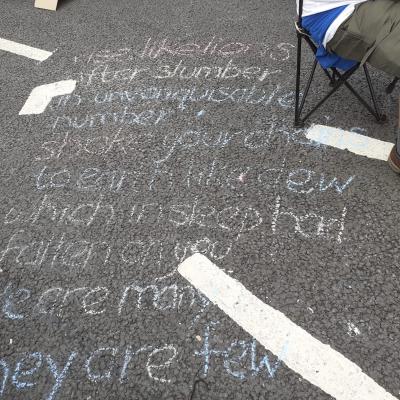 rise like lions
after slumber
in unvanquisable
number
shake your chains
to earth like dew
which in sleep had
fallen on you
we are many
they are few